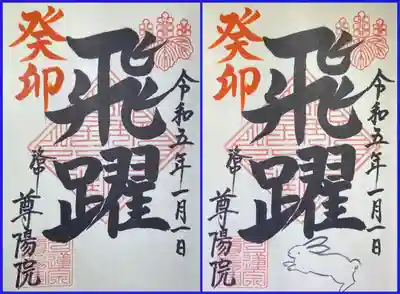 癸卯
飛躍
令和五年一月一日
尊陽院
癸卯
飛躍
令和五年一月一日
尊陽院